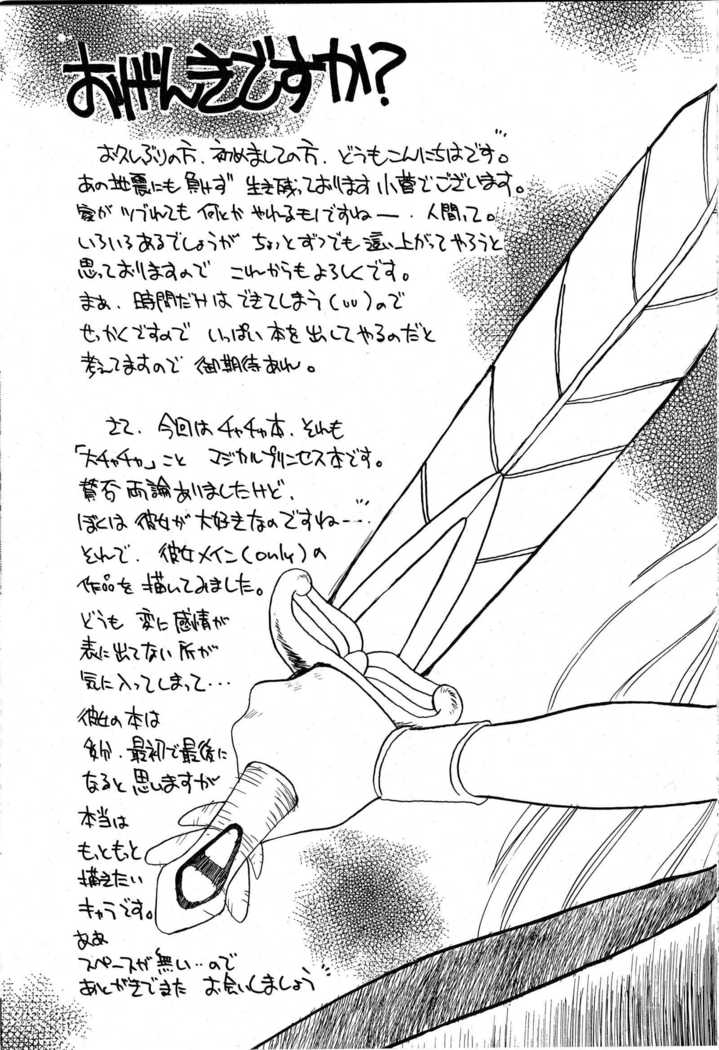 おげんきですか?
お久しぶりの方、初めましての方、どうもこんにちはです。
あの地震にも負けず 生き残っております 小菅でございます。
家がツブれても 何とか やれるモんですねー、人間って。
いろいろあるでしょうが ちょっとずつでも 這い上がってやろうと
思っておりますので これからもよろしくです。
まぁ、時間だけはできてしまう(UU)ので
せっかくですので いっぱい本を出してやるのだと
考えてますので 御期待あれ。
さて、今回はチャチャ本、それも
「大チャチャ」こと マジカルプリンセス本です。
賛否両論ありましたけど、
ぼくは彼女が大好きなのですねー…
それで、彼女メイン(only)の
作品を描いてみました。
どうも 変に感情が
表に出てない所が
気に入ってしまって…
彼女の本は
多分、最初で最後に
なると思いますが
本当は
もっともっと
描きたい
キャラです。
ああ
スペースが無い…ので
あとがきでまた お会いしましょう